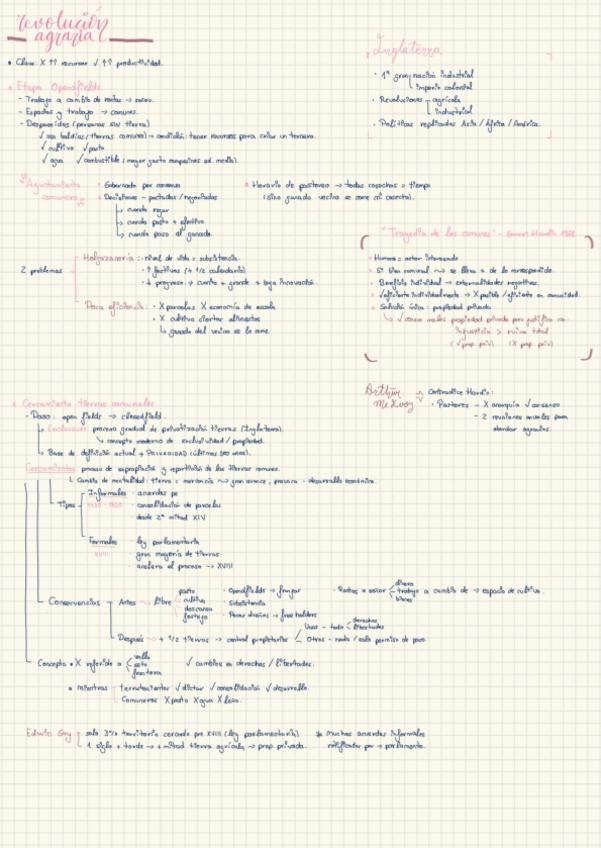 revolución
agraria
• Clave: X ↑↑ recursos √ ↑↑ productividad.
• Etapa Openfields
- Trabajo a cambio de rentas → señor.
- Espacios y trabajo → comunes.
- Desposeídos (personas sin tierra)
√ uso baldíos (tierras comunes) → condición: tener recursos para criar un ternero.
√ cultivo √ pasto
√ agua √ combustible
Inglaterra
• 1ª gran nación industrial
imperio colonial
• Revoluciones agrícola
industrial
• Políticas replicadas Asia/África/América.
Agrupamiento
comunero
• Gobernado por consenso
• Decisiones - pactadas/negociadas
↳ cuando regar
↳ cuando pasto + efectivo
↳ cuando paso al ganado.
• Horario de pastoreo → todos cosechas = tiempo
(sino ganado vecino se come mi cosecha).
"Tragedia de los comunes" - Garret Hardin 1968
• Humano: actor interesado
• Beneficio individual → externalidades negativas.
• √ eficiente individualmente → X posible/eficiente en comunidad.
• Solución única: propiedad privada
injusticia > ruina total
(√ prop. priv) (X prop. priv)
2 problemas
Holgazanería: • nivel de vida = subsistencia.
• ↑ festivos (+ 1/2 calendario)
• ↓ progreso → cuanto + grande → baja innovación.
Poca eficiencia: • X parcelas X economía de escala
• X cultivo ciertos alimentos
↳ ganado del vecino se lo come.
Arthur
McEvoy
Contradice Hardin:
• Pastores - X anarquía √ consenso
- 2 reuniones anuales para
abordar agravios.
• Cercamiento tierras comunales
- Paso: open fields → closedfield.
↳ Enclosures: proceso gradual de privatización tierras (Inglaterra).
↳ concepto moderno de exclusividad/propiedad.
↳ Base de definición actual + PRIVACIDAD (últimos 300 años).
Cercamientos: proceso de expropiación y repartición de las tierras comunes.
↳ Cambio de mentalidad: tierra = mercancía → gran avance, provoca desarrollo económico.
Tipos
Informales • acuerdos
• consolidación de parcelas
• desde 2ª mitad XIV
Formales • ley parlamentaria
XVIII • gran mayoría de tierras
• acelera el proceso → XVIII
Consecuencias
Antes → libre
pasto
cultivo
descanso
festejo
• Openfields → franjas
• Subsistencia
• Pocos dueños → freeholders
• Rentas a señor
dinero
trabajo a cambio de → espacio de cultivo.
bienes
Después → + 1/2 tierras → control propietarios
Unos - todo
derechos
libertades
Otros - nada/solo permiso de paso
Concepto • X referido a
valla
seto
frontera
√ cambios en derechos/libertades.
• mientras
terratenientes √ dictar √ consolidación √ desarrollo.
Comuneros X pasto X agua X leña.
Edwin Gay
solo 3% territorio cercado pre XVIII (ley parlamentaria)
1 siglo + tarde → + mitad tierra agrícola → prop. privada.
* Muchos acuerdos informales
ratificados por → parlamento.